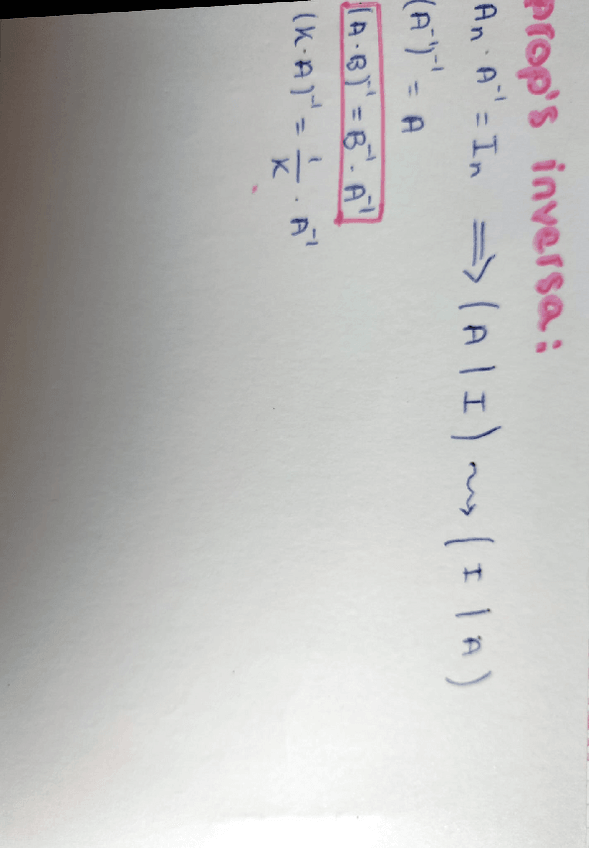 prop's inversa:
Aₙ · A⁻¹ = Iₙ ⟹ (A | I) ⇝ (I | A)
(A⁻¹)⁻¹ = A
(A · B)⁻¹ = B⁻¹ · A⁻¹
(K · A)⁻¹ = 1/K · A⁻¹